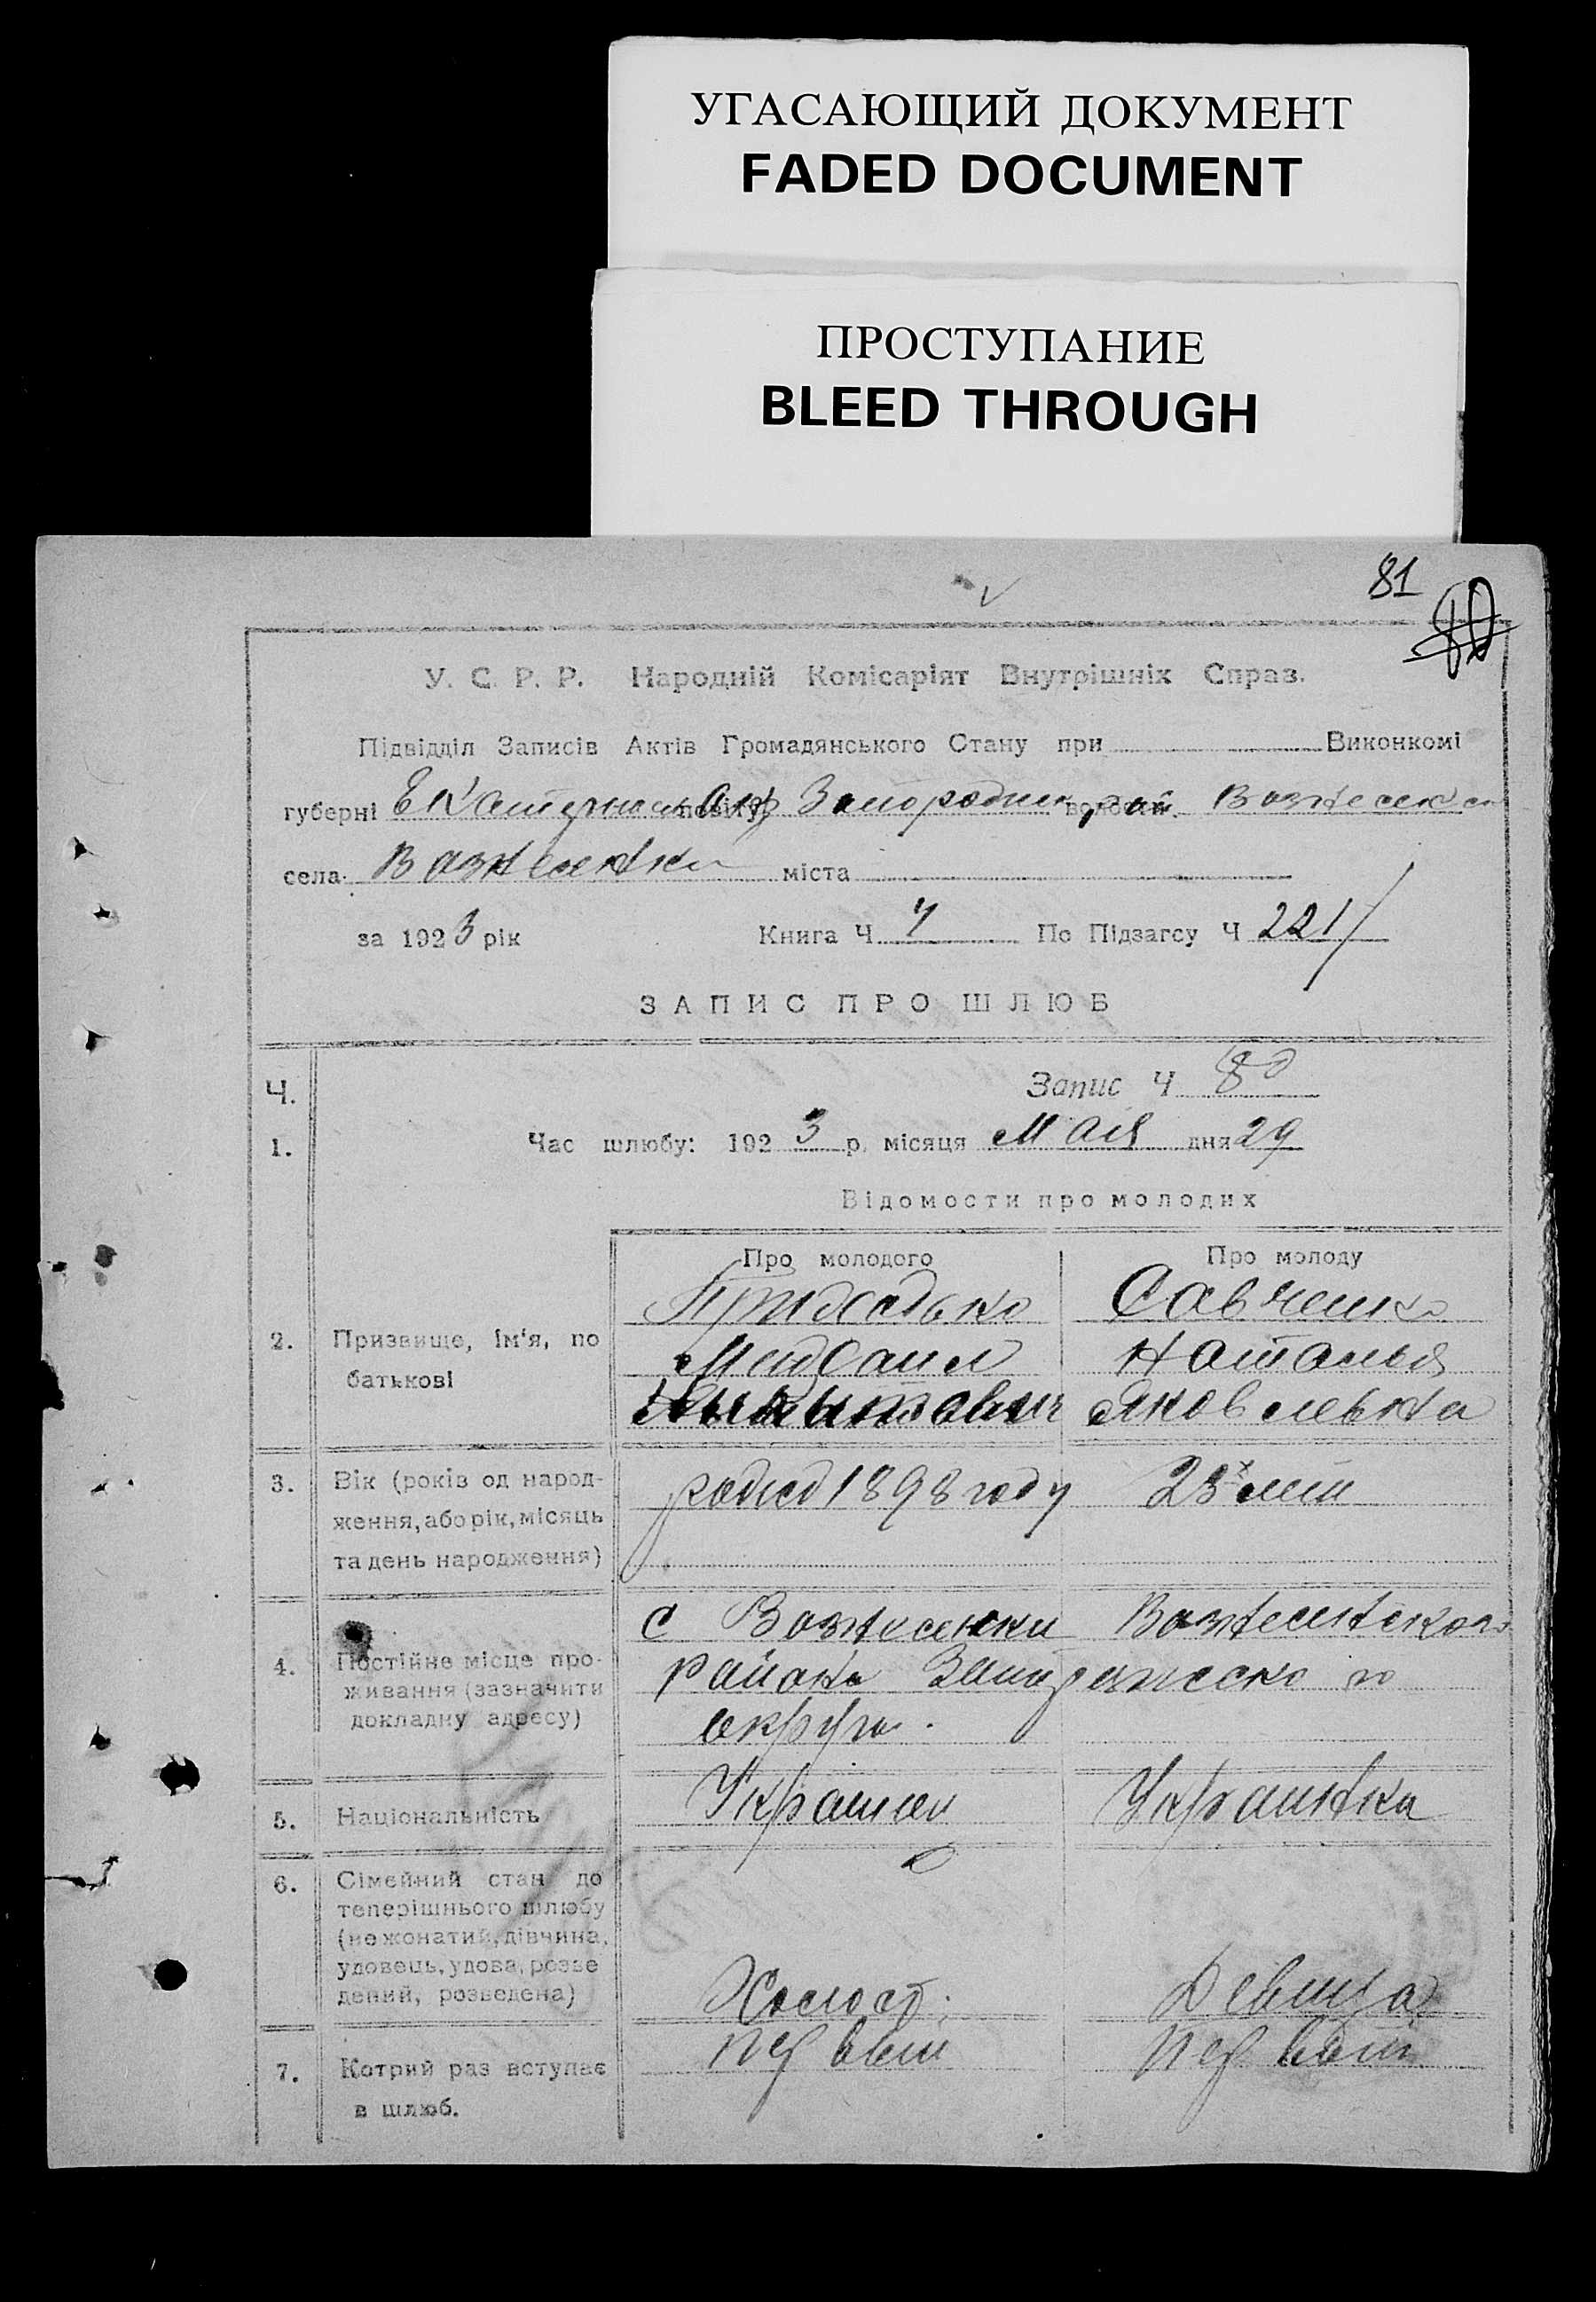 УГАСАЮЩИЙ ДОКУМЕНТ
FADED DOCUMENT
ПРОСТУПАНИЕ
BLEED THROUGH
81
У. С. Р. Р. Народній Комісаріят Внутрішніх Справ.
Підвідділ Записів Актів Громадянського Стану при Виконкомі
губерні повіту волости
села Вознесенки міста
за 1923 рік Книга Ч По Підзагсу Ч 221
ЗАПИС ПРО ШЛЮБ
Ч. Запис Ч 80
1. Час шлюбу: 1923 р. місяця Мая дня 29
Відомости про молодих
Про молодого Про молоду
Савченко
2. Призвище, ім'я, по Михаил Наталья
батькові Яковлевна
3. Вік (років од народ- 1898 году 23 лет
ження, або рік, місяць
та день народження)
с Вознесенки Вознесенского
4. Постійне місце про- района Запорожского
живання (зазначити
докладну адресу) округа.
5. Національність Украинец Украинка
6. Сімейний стан до
теперішнього шлюбу
(не жонатий, дівчина,
удовець, удова, розве
дений, розведена) Холост. Девица
7. Котрий раз вступає первый первый
в шлюб.